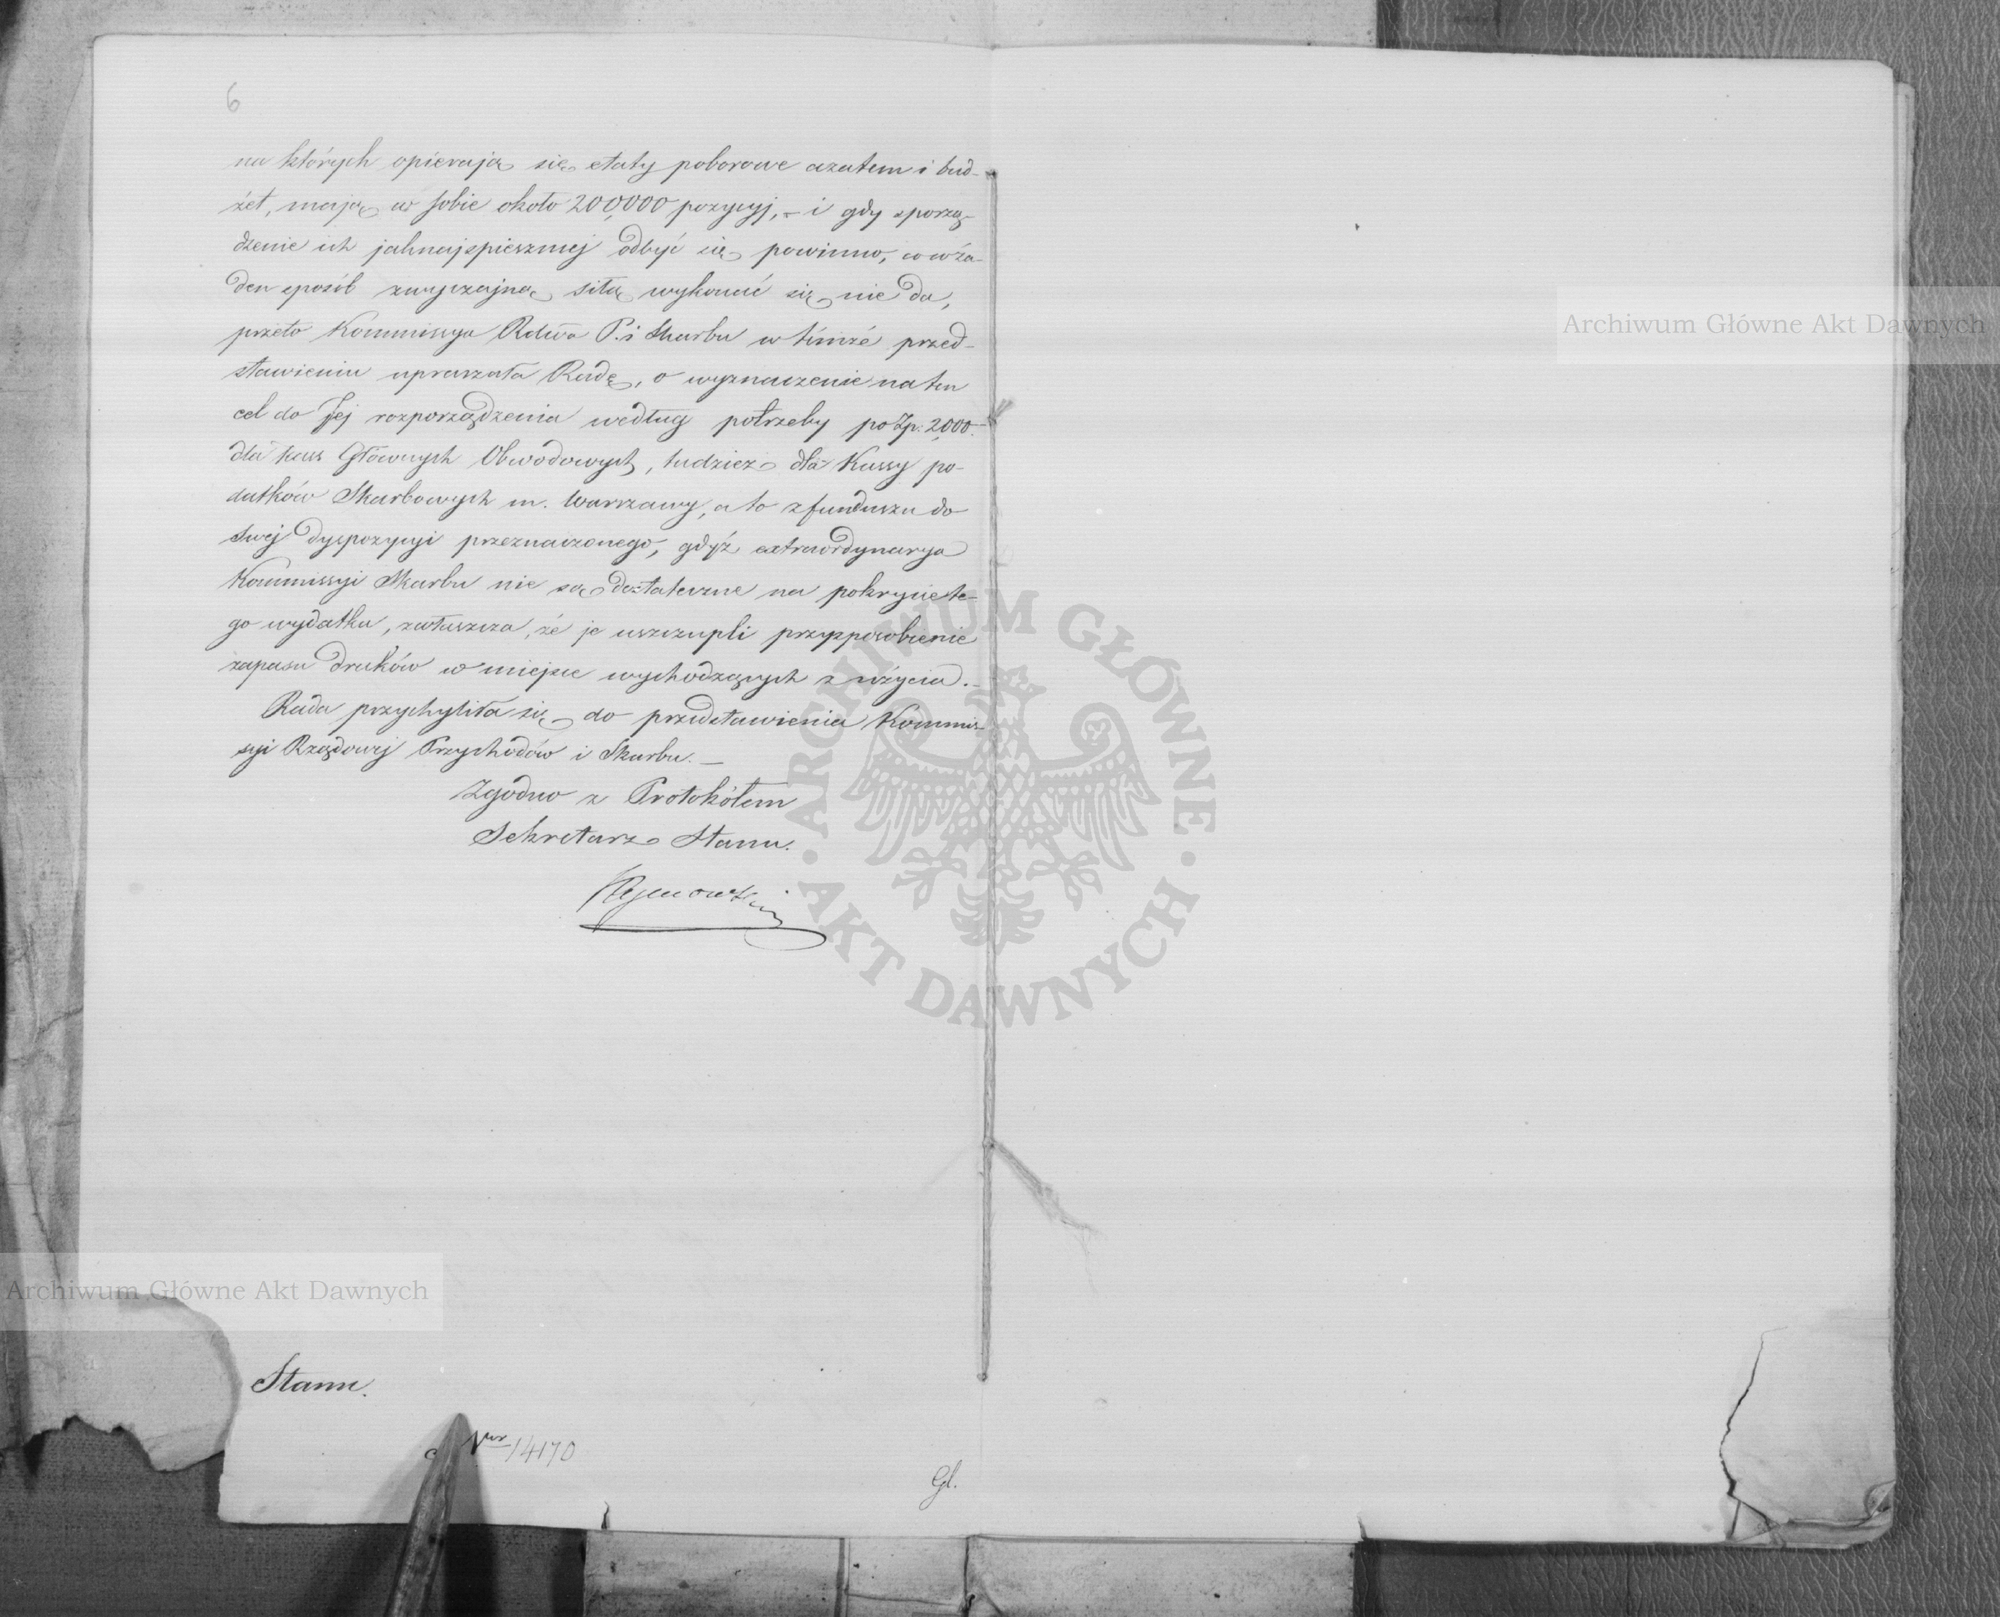 6
na których opierają się etaty poborowe azatem i bud-
żet, mają w sobie około 200,000 pozycyj, - i gdy sporzą-
dzenie ich jaknajspieszniej odbyć się powinno, co w ża-
den sposób zwyczajną siłą wykonać się nie da,
przeto Kommissya Rdwa P. i Skarbu w témże przed-
stawieniu upraszała Radę, o wyznaczenie na ten
cel do Jej rozporządzenia według potrzeby po Zp. 2,000.
dla kass Głównych Obwodowych, tudzież dla Kassy po-
datków Skarbowych m. Warszawy, a to z funduszu do
swej dyspozycyi przeznaczonego, gdyż extraordynarya
Kommissyi Skarbu nie są dostateczne na pokrycie te-
go wydatku, zwłaszcza, że je uszczupli przysposobienie
zapasu druków w miejsce wychodzących z użycia. -
Rada przychyliła się do przedstawienia Kommis-
syi Rządowej Przychodów i Skarbu. -
Zgodno z Protokółem
Sekretarz Stanu.
Stanu.
Nro 14170
Gl.
Archiwum Główne Akt Dawnych
Archiwum Główne Akt Dawnych
ARCHIWUM GŁÓWNE · AKT DAWNYCH ·